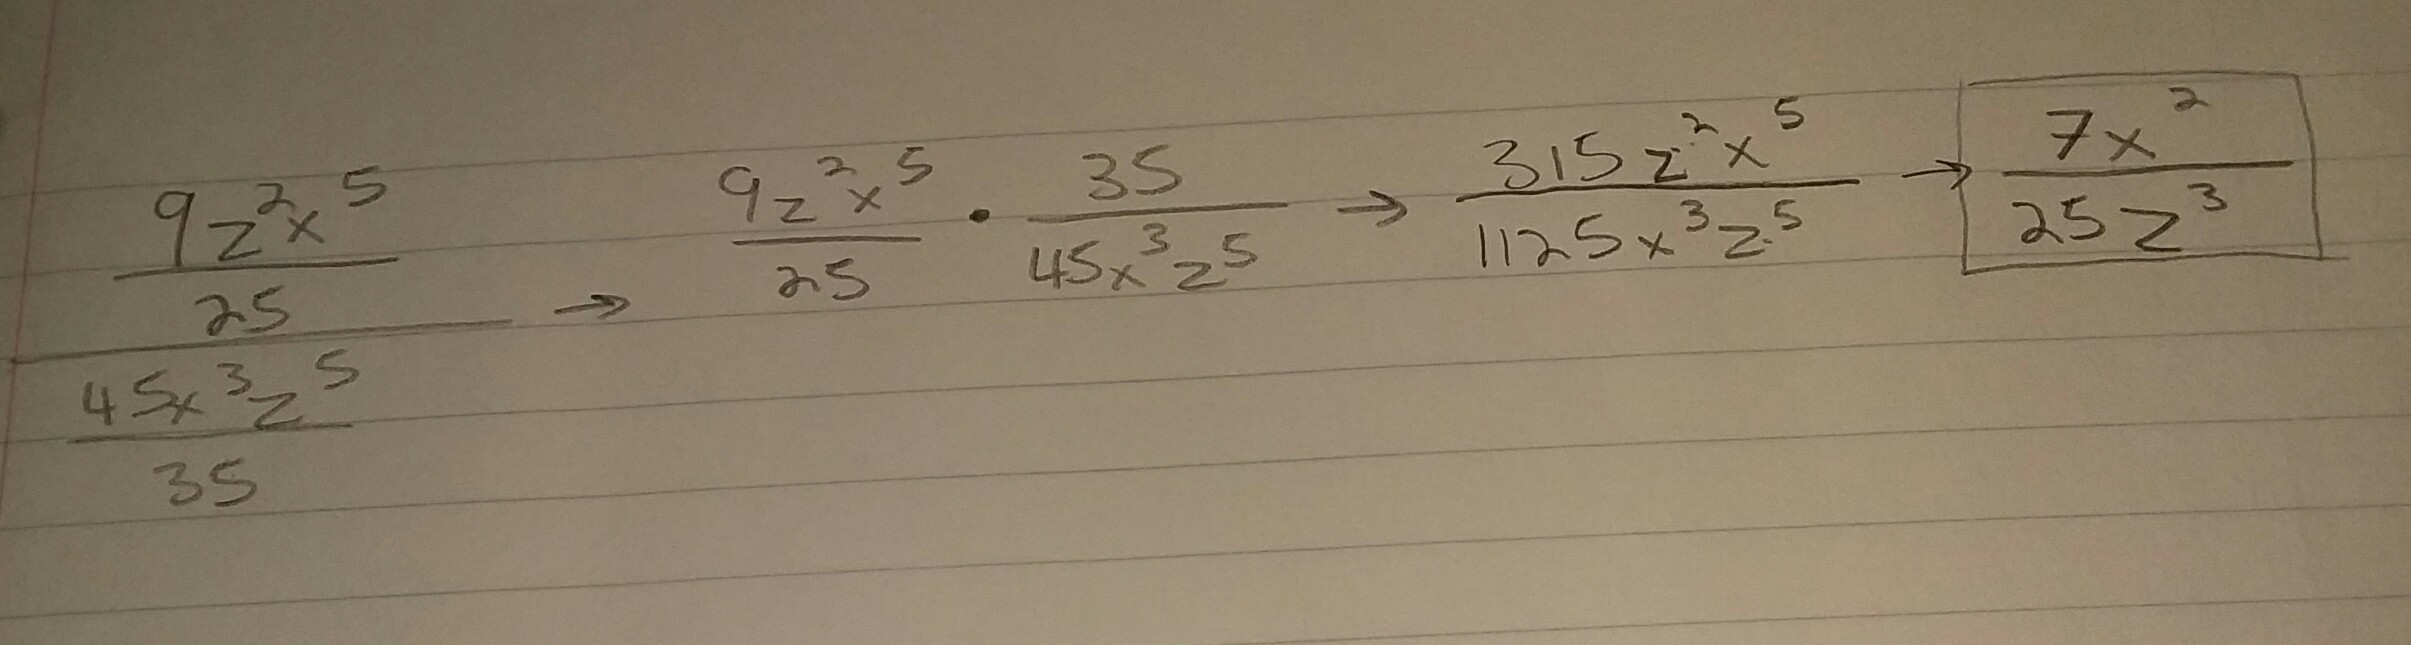 9z²x⁵/25 / 45x³z⁵/35 → 9z²x⁵/25 · 35/45x³z⁵ → 315z²x⁵/1125x³z⁵ → 7x²/25z³